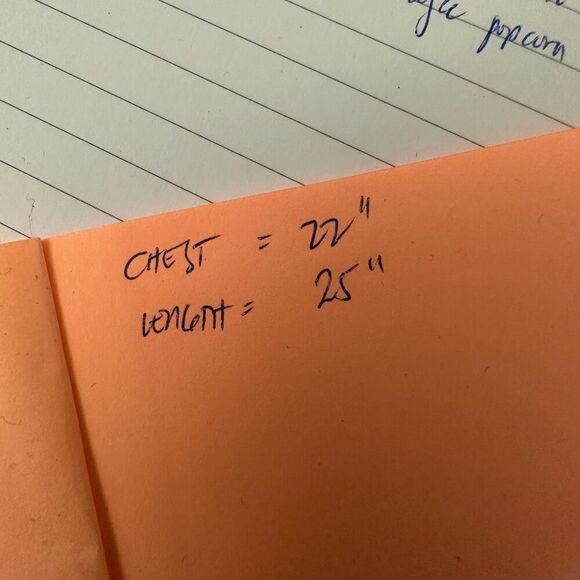 popcorn
CHEST = 22"
LENGTH = 25"